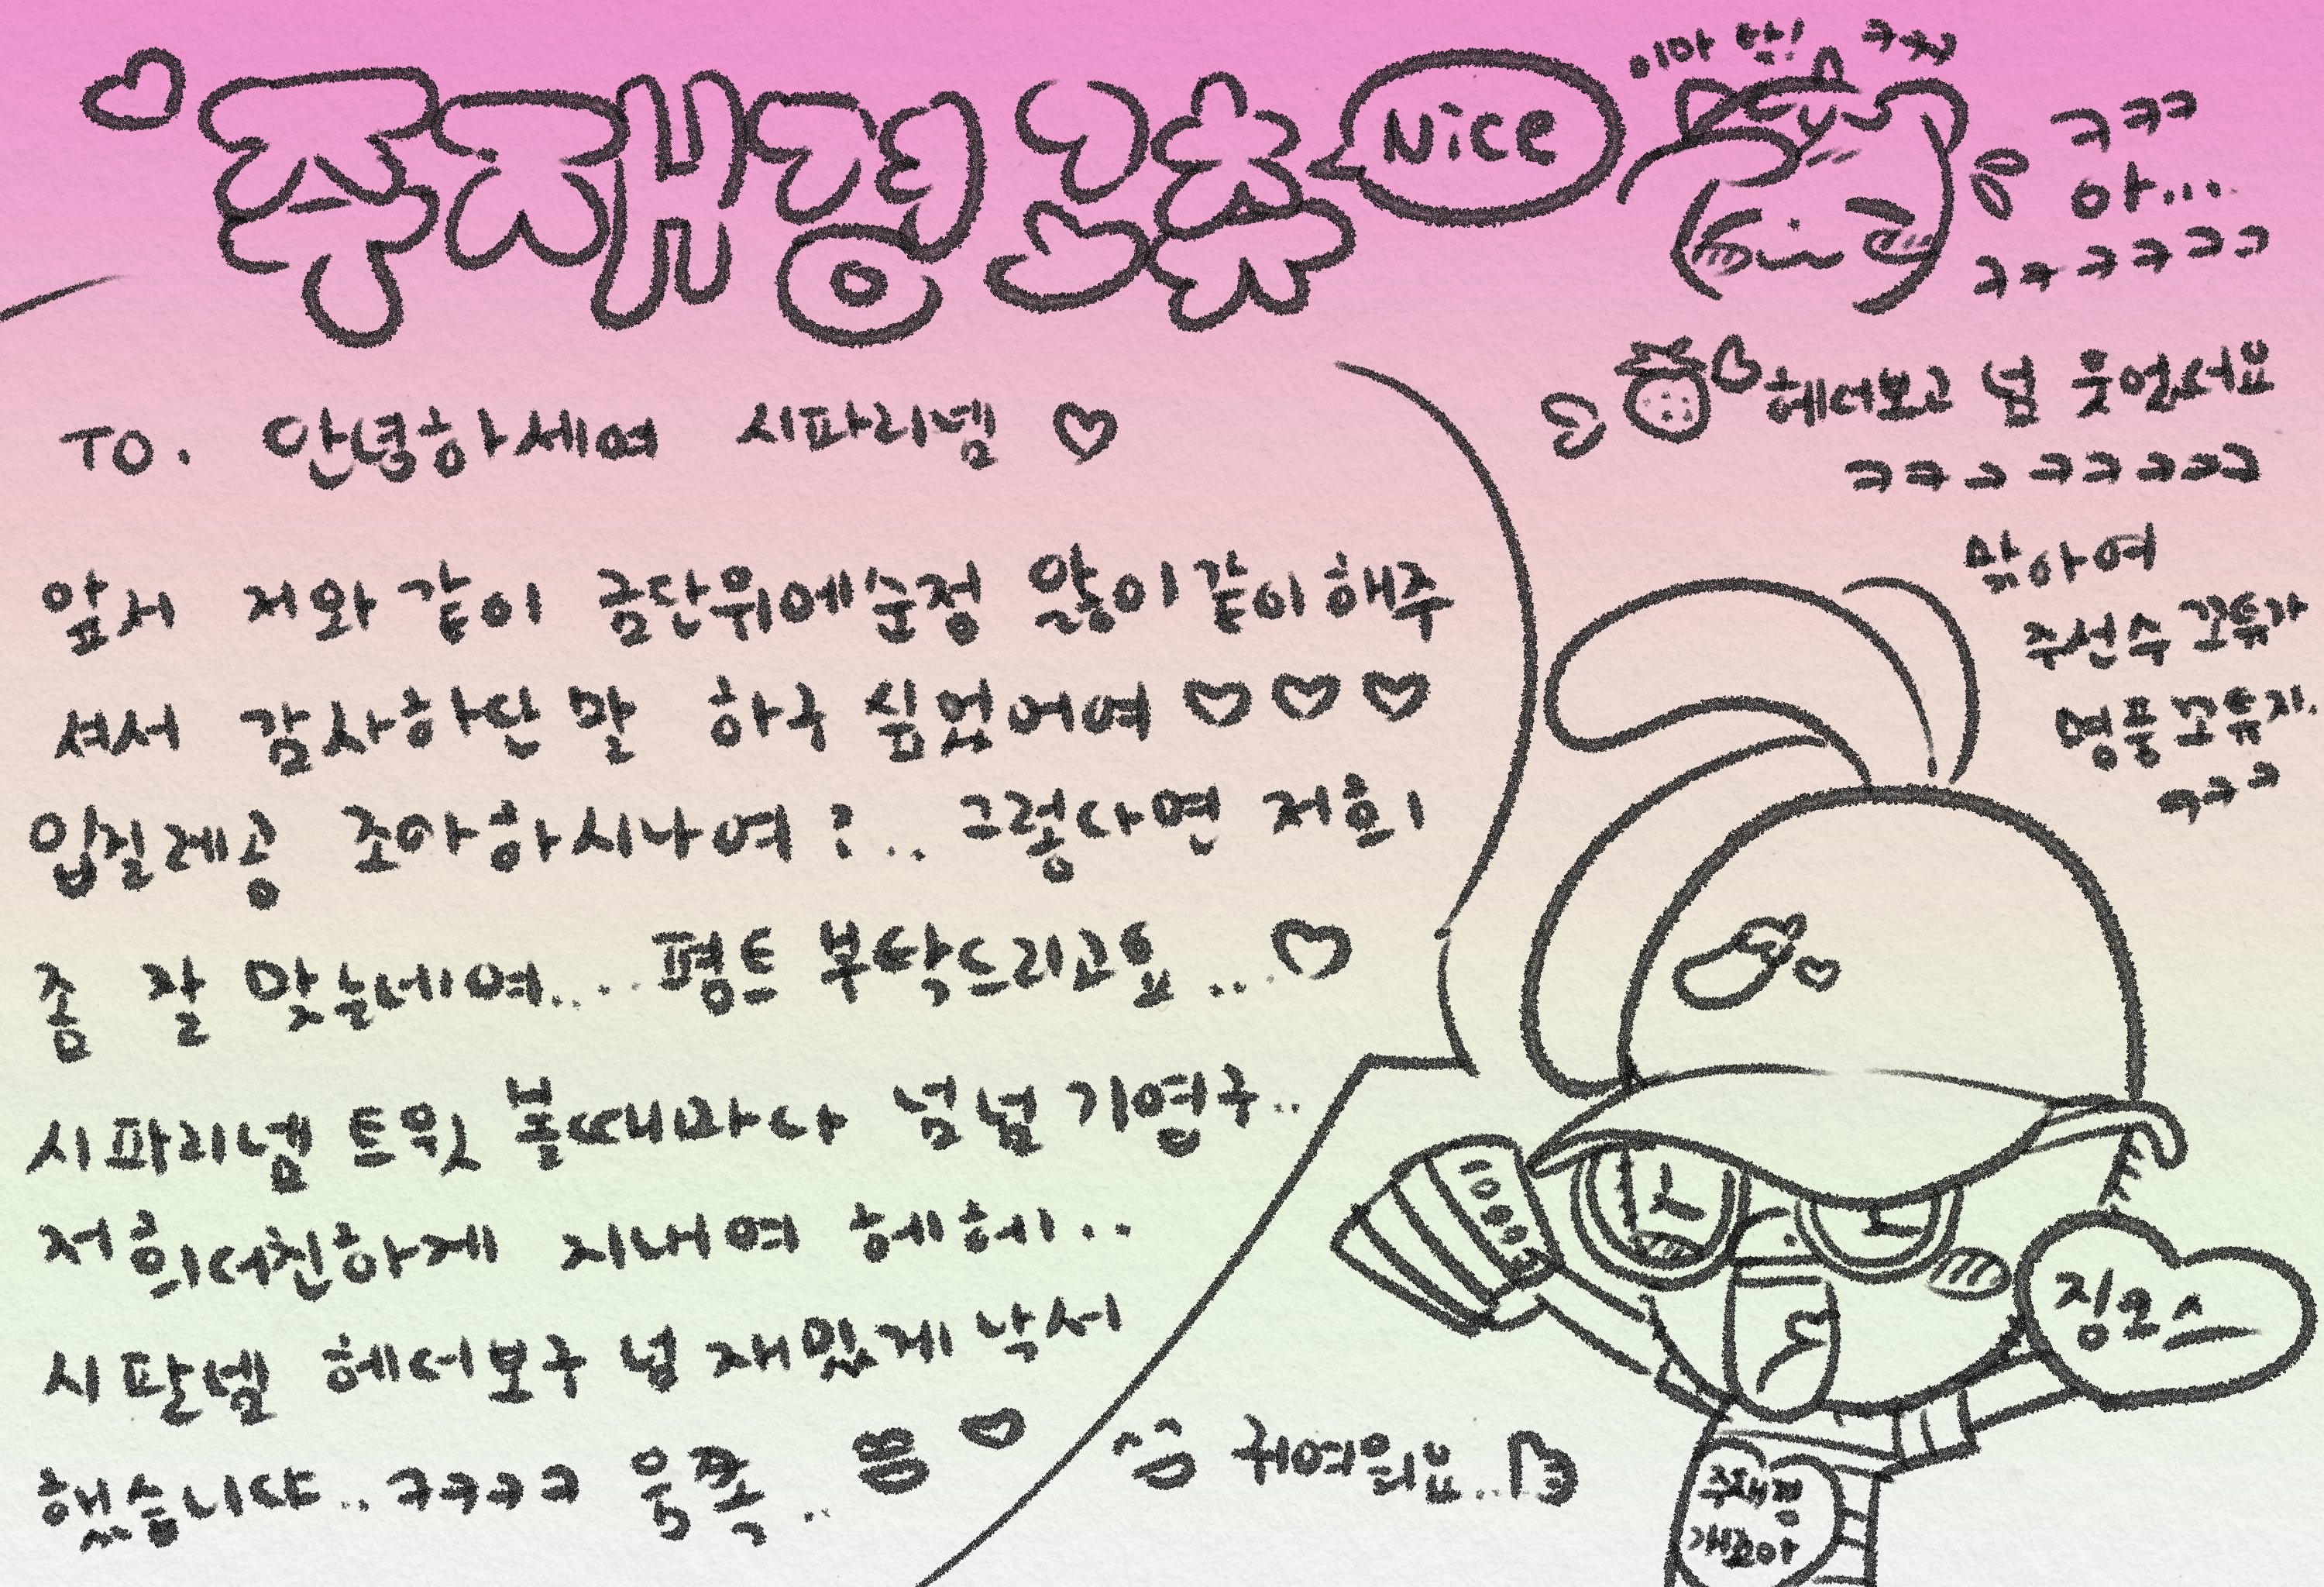 Nice
이마 빡! ㅋㅋㅋ
ㅋㅋㅋ
아...
ㅋㅋㅋㅋㅋㅋ
헤더보고 넘 웃었서요
ㅋㅋㅋㅋㅋㅋㅋㅋ
맞아여
주선수 꼬튜가
명품 꼬튜지.
ㅋㅋㅋ
TO. 안녕하세여 시파리넴 ♡
앞서 저와 같이 금단위에순정 앓이 같이 해주
셔서 감사하단 말 하구 싶었어여 ♡ ♡ ♡
입질레공 조아하시나여?.. 그렇다면 저희
좀 잘 맞는데여.... 평트 부탁드리고요... ♡
시파리넴 트윗 볼때마다 넘넘 기엽구..
저희더친하게 지내여 헤헤..
시판넴 헤더보구 넘 재밌게 낙서
했습니댜.. ㅋㅋㅋㅋ 움쪽.. ♡
귀여워요..
징크스
주재경
개조아